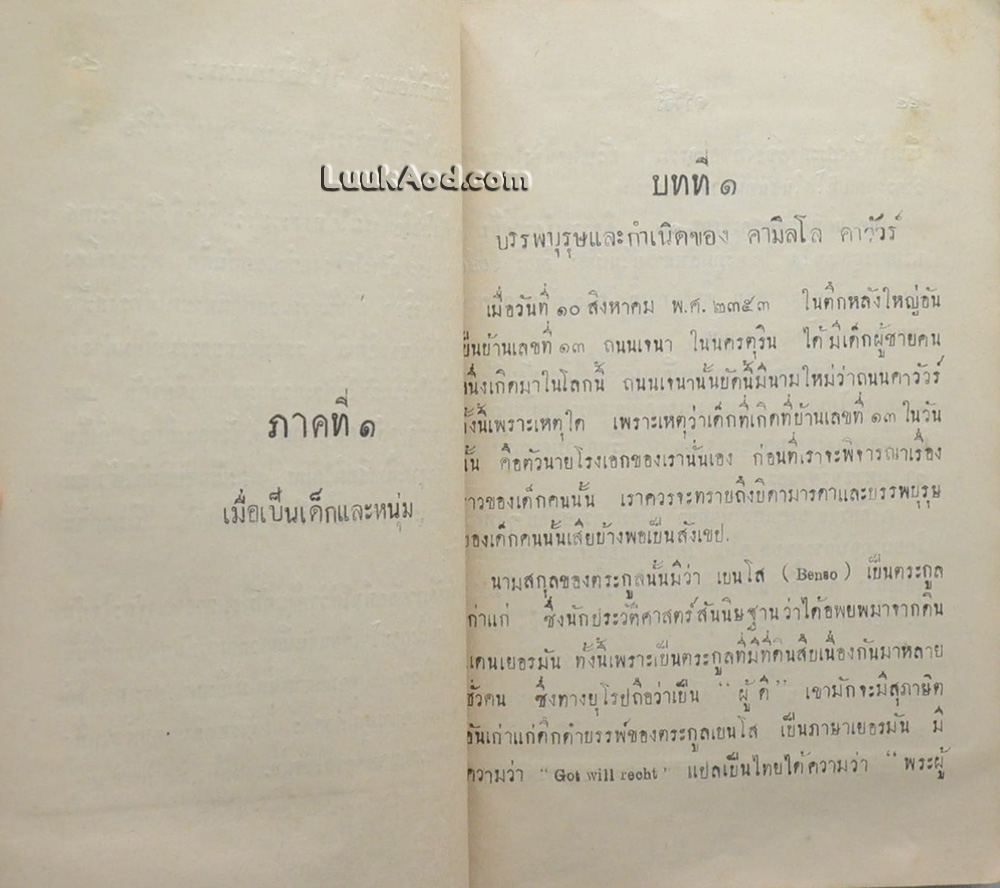 LuukAod.com
ภาคที่ ๑
เมื่อเป็นเด็กและหนุ่ม
บทที่ ๑
บรรพบุรุษและกำเนิดของ คามิลโล คาวัวร์
เมื่อวันที่ ๑๐ สิงหาคม พ.ศ. ๒๓๕๓ ในตึกหลังใหญ่อัน
เป็นบ้านเลขที่ ๑๓ ถนนเจนา ในนครตุริน ได้มีเด็กผู้ชายคน
หนึ่งเกิดมาในโลกนี้ ถนนเจนานั้นบัดนี้มีนามใหม่ว่าถนนคาวัวร์
ทั้งนี้เพราะเหตุใด เพราะเหตุว่าเด็กที่เกิดที่บ้านเลขที่ ๑๓ ในวัน
นั้น คือตัวนายโรงเอกของเรานั่นเอง ก่อนที่เราจะพิจารณาเรื่อง
ราวของเด็กคนนั้น เราควรจะทราบถึงบิดามารดาและบรรพบุรุษ
ของเด็กคนนั้นเสียบ้างพอเป็นสังเขป.
นามสกุลของตระกูลนั้นมีว่า เบนโส (Benso) เป็นตระกูล
เก่าแก่ ซึ่งนักประวัติศาสตร์สันนิษฐานว่าได้อพยพมาจากดิน
แดนเยอรมัน ทั้งนี้เพราะเป็นตระกูลที่มีที่ดินสืบเนื่องกันมาหลาย
ชั่วคน ซึ่งทางยุโรปถือว่าเป็น "ผู้ดี" เขามักจะมีสุภาษิต
อันเก่าแก่ดึกดำบรรพ์ของตระกูลเบนโส เป็นภาษาเยอรมัน มี
ความว่า "Got will recht" แปลเป็นไทยได้ความว่า "พระผู้